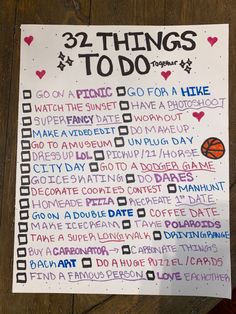 32 THINGS
TO DO Together
GO ON A PICNIC GO FOR A HIKE
WATCH THE SUNSET HAVE A PHOTOSHOOT
SUPER FANCY DATE WORKOUT
MAKE A VIDEO EDIT DO MAKEUP
GO TO A MUSEUM UNPLUG DAY
DRESS UP LOL PICKUP /21/HORSE
CITY DAY GO TO A DODGER GAME
GO ICE SKATING DO DARES
DECORATE COOKIES CONTEST MANHUNT
HOMEMADE PIZZA RECREATE 1ST DATE
GO ON A DOUBLE DATE COFFEE DATE
MAKE ICECREAM TAKE POLAROIDS
TAKE A SUPER LONG WALK DRIVING RANGE
BUY A CARBONATOR → CARBONATE THINGS
BACK ART DO A HUGE PUZZEL/CARDS
FIND A FAMOUS PERSON LOVE EACHOTHER